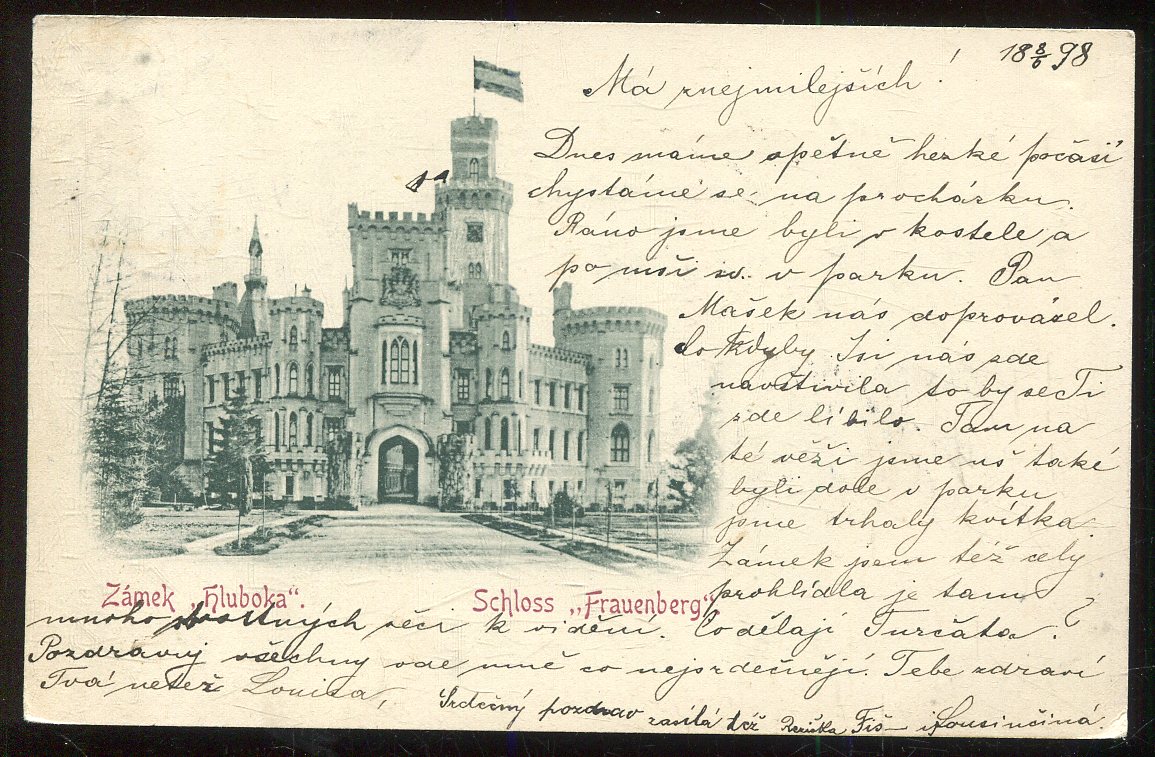 18 8/6 98
Má znejmilejších!
Dnes máme opětně hezké počasí
chystáme se na procházku.
Ráno jsme byli v kostele a
po mši sv. v parku. Pan
Mašek nás doprovázel.
Kdyby Jsi nás zde
navštívila to by se Ti
zde líbilo. Tam na
té věži jsme už také
byli dole v parku
jsme trhaly kvítka
Zámek jsem též celý
prohlídla je tam
Zámek „Hluboka".
Schloss „Frauenberg"
mnoho věcí k vidění. Co dělají Turčata?
Pozdravuj všechny ode mně co nejsrdečnějí. Tebe zdraví
Tvá neteř Louisa,
Srdečný pozdrav zasílá též Fiš